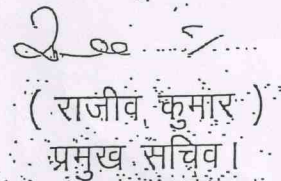 ( राजीव कुमार )
प्रमुख सचिव।